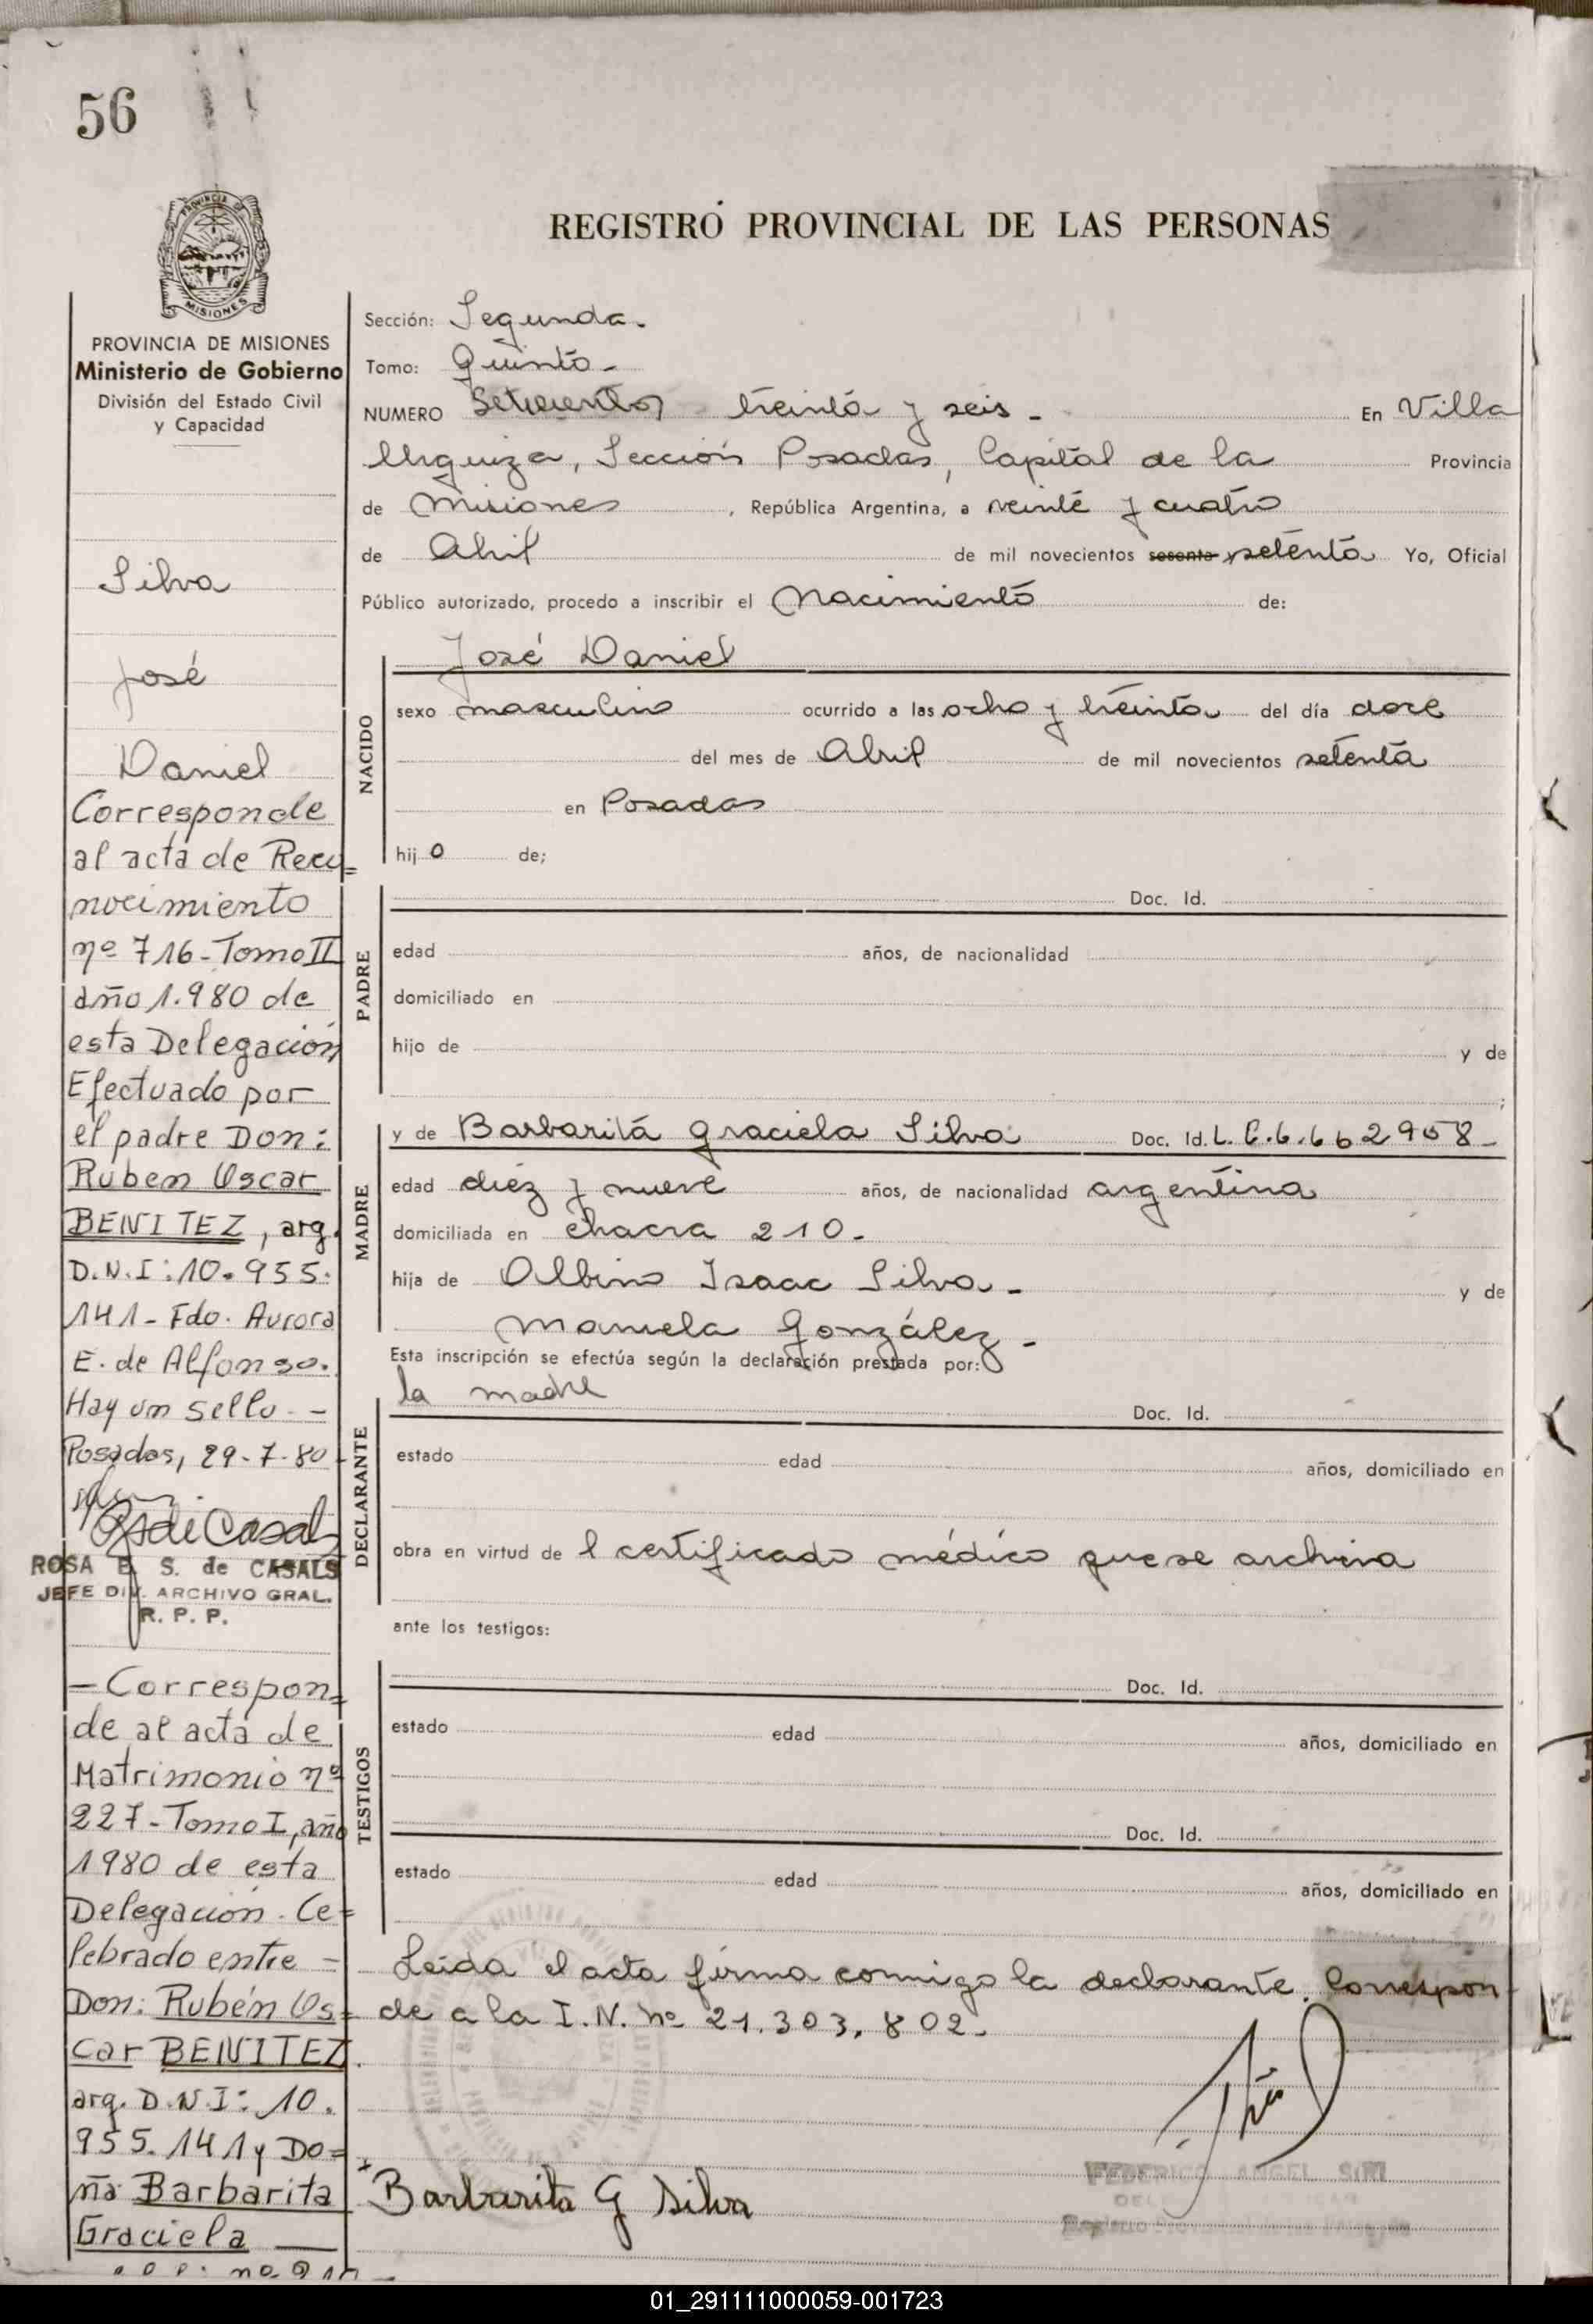 56
PROVINCIA DE
MISIONES
REGISTRO PROVINCIAL DE LAS PERSONAS
PROVINCIA DE MISIONES
Ministerio de Gobierno
División del Estado Civil
y Capacidad
Silva
José
Daniel
Corresponde
al acta de Reco=
nocimiento
nº 716-Tomo II
año 1.980 de
esta Delegación
Efectuado por
el padre Don:
Rúben Oscar
BENITEZ, arg.
D.N.I: 10.955.
141- Fdo. Aurora
E. de Alfonso.
Hay un sello. -
Posadas, 29-7-80
ROSA E. S. de CASALS
JEFE DIV. ARCHIVO GRAL.
R. P. P.
- Correspon=
de al acta de
Matrimonio nº
227-Tomo I, año
1980 de esta
Delegación. Ce=
lebrado entre -
Don: Rubén Os=
car BENITEZ.
arg. D.N.I: 10.
955.141 y Do=
ña Barbarita
Graciela
Sección: Segunda.
Tomo: Quinto-
NUMERO Setecientos treinta y seis - En Villa
Urquiza, Sección Posadas, Capital de la Provincia
de Misiones, República Argentina, a veinte y cuatro
de Abril de mil novecientos sesenta y setenta Yo, Oficial
Público autorizado, procedo a inscribir el Nacimiento de:
NACIDO
José Daniel
sexo masculino ocurrido a las ocho y treinta del día doce
del mes de Abril de mil novecientos setenta
en Posadas
hijo de;
PADRE
Doc. Id.
edad años, de nacionalidad
domiciliado en
hijo de y de
;
MADRE
y de Barbarita Graciela Silva Doc. Id. L.C.6.662958-
edad diéz y nueve años, de nacionalidad argentina
domiciliada en chacra 210.
hija de Albino Isaac Silva - y de
Manuela González -
Esta inscripción se efectúa según la declaración prestada por:
DECLARANTE
la madre
Doc. Id.
estado edad años, domiciliado en
obra en virtud de l certificado médico que se archiva
ante los testigos:
TESTIGOS
Doc. Id.
estado edad años, domiciliado en
Doc. Id.
estado edad años, domiciliado en
Leida el acta firma conmigo la declarante. Correspon-
de a la I.N. nº 21.303.802-
Barbarita G Silva
FEDERICO ANGEL
01_291111000059-001723